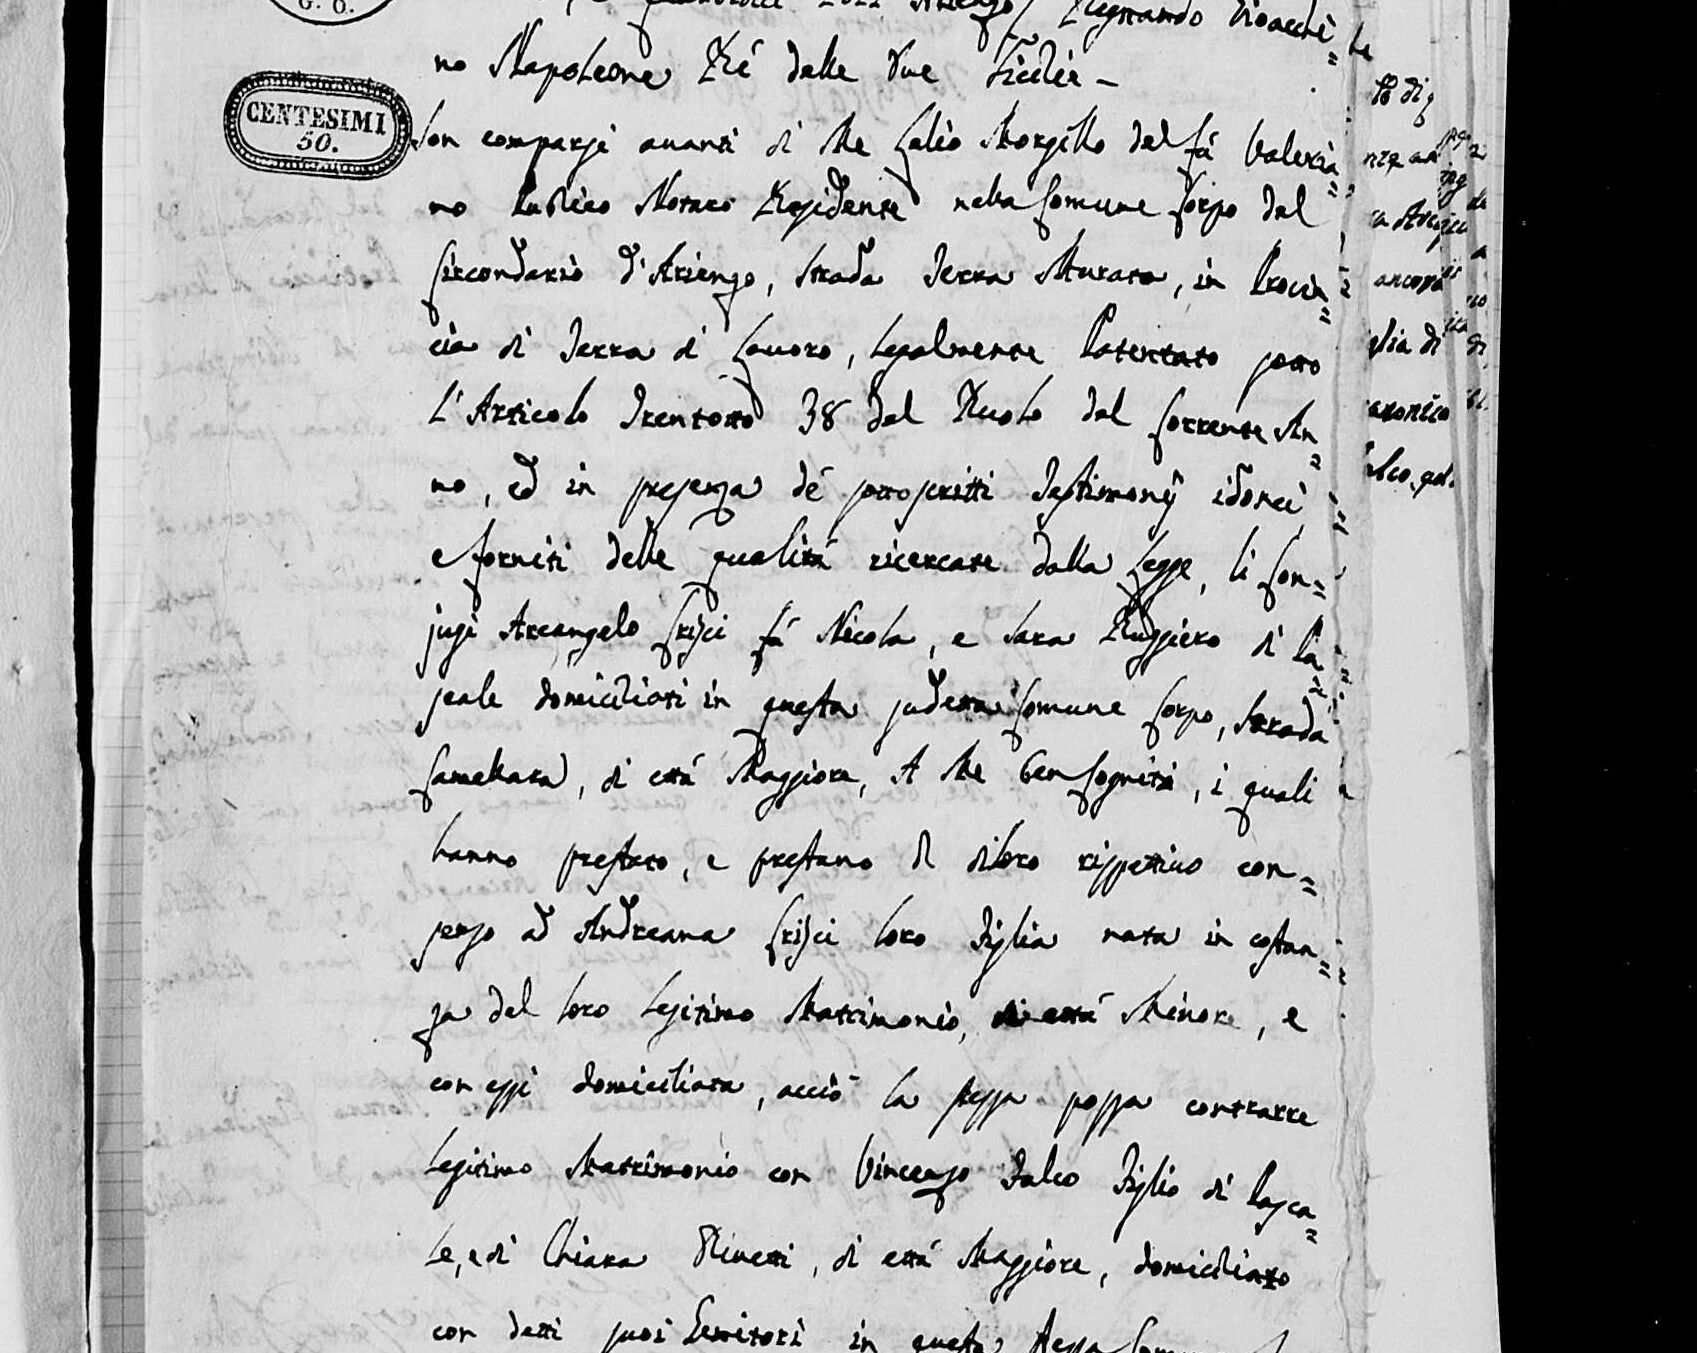 G. O.
Regnando Gioacchi=
no Napoleone Ré delle due Sicilie –
CENTESIMI
50.
Son comparsi avanti di Me Lelio Morgillo del fú Valeria=
no Publico Notaro Residente nella Comune Forpo del
Circondario d'Arienzo, Strada Terra Murata, in Provin=
cia di Terra di Lavoro, legalmente Patentato sotto
L'Articolo Trentotto 38 del Ruolo del Corrente An=
no, ed in presenza dé sottoscritti Testimonÿ idonei
e forniti delle qualitá ricercate dalla Legge, li Con=
jugi Arcangelo Crisci fú Nicola, e Sara Ruggiero di Pa=
scale domiciliati in questa sudetta Comune Forpo, Strada
di etá Maggiore, A Me ben Cogniti, i quali
hanno prestato, e prestano il diloro rispettivo con=
senso ad Andreana Crisci loro Figlia nata in costan=
za del loro legitimo Matrimonio, di etá Minore, e
con essi domiciliata, acció la stessa possa contrarre
legitimo Matrimonio con Vincenzo Falco Figlio di Pasca=
le, e di Chiara Rivetti, di etá Maggiore, domiciliato
con detti suoi Genitori in questa stessa Comune